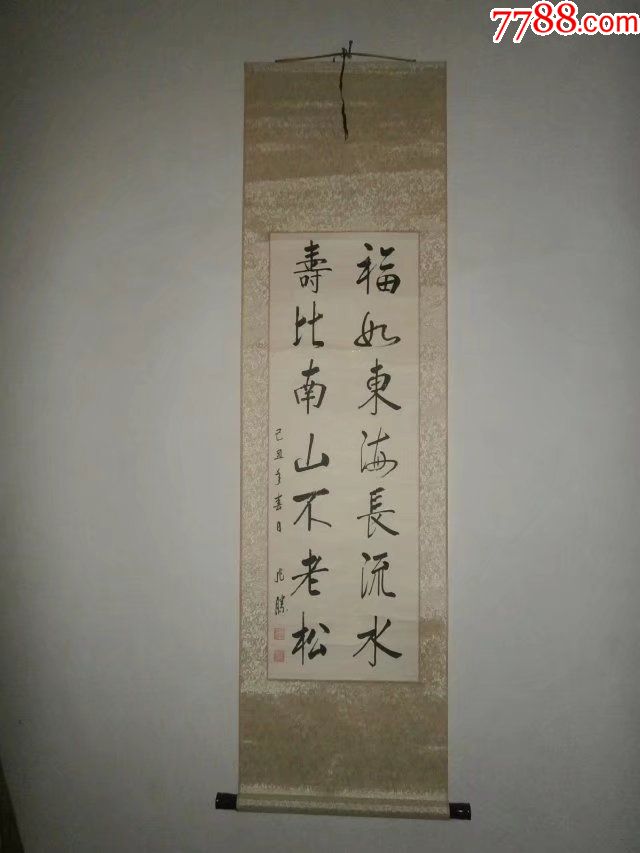 7788.com
福如東海長流水
壽比南山不老松
己丑年春月